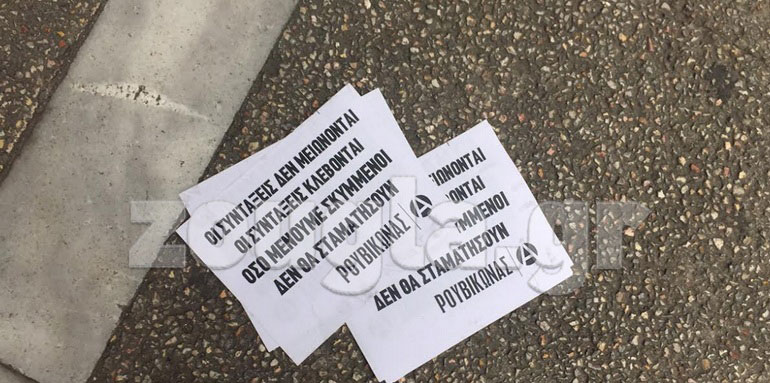 ΟΙ ΣΥΝΤΑΞΕΙΣ ΔΕΝ ΜΕΙΩΝΟΝΤΑΙ
ΟΙ ΣΥΝΤΑΞΕΙΣ ΚΛΕΒΟΝΤΑΙ
ΟΣΟ ΜΕΝΟΥΜΕ ΣΚΥΜΜΕΝΟΙ
ΔΕΝ ΘΑ ΣΤΑΜΑΤΗΣΟΥΝ
ΡΟΥΒΙΚΩΝΑΣ
ΕΙΩΝΟΝΤΑΙ
ΟΝΤΑΙ
ΜΜΕΝΟΙ
ΔΕΝ ΘΑ ΣΤΑΜΑΤΗΣΟΥΝ
ΡΟΥΒΙΚΩΝΑΣ
zougla.gr